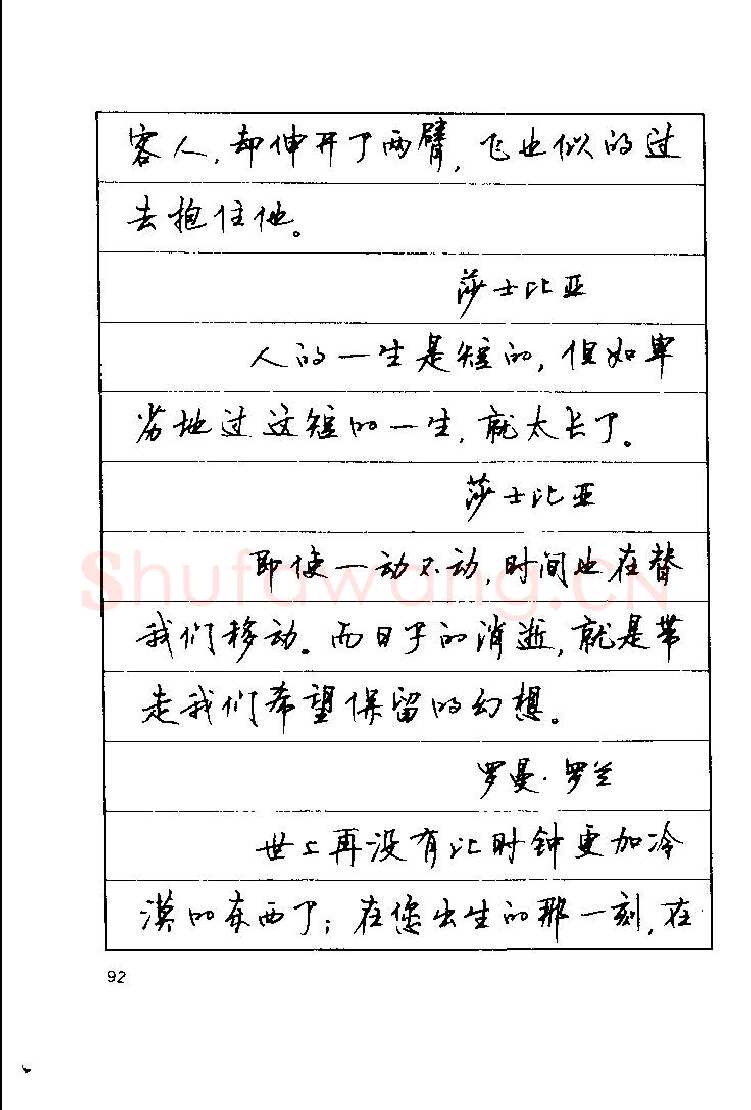 客人，却伸开了两臂，飞也似的过
去抱住他。
莎士比亚
人的一生是短的，但如卑
劣地过这短的一生，就太长了。
莎士比亚
即使一动不动，时间也在替
我们移动。而日子的消逝，就是带
走我们希望保留的幻想。
罗曼·罗兰
世上再没有比时钟更加冷
漠的东西了；在您出生的那一刻，在
92
Shufawang.CN